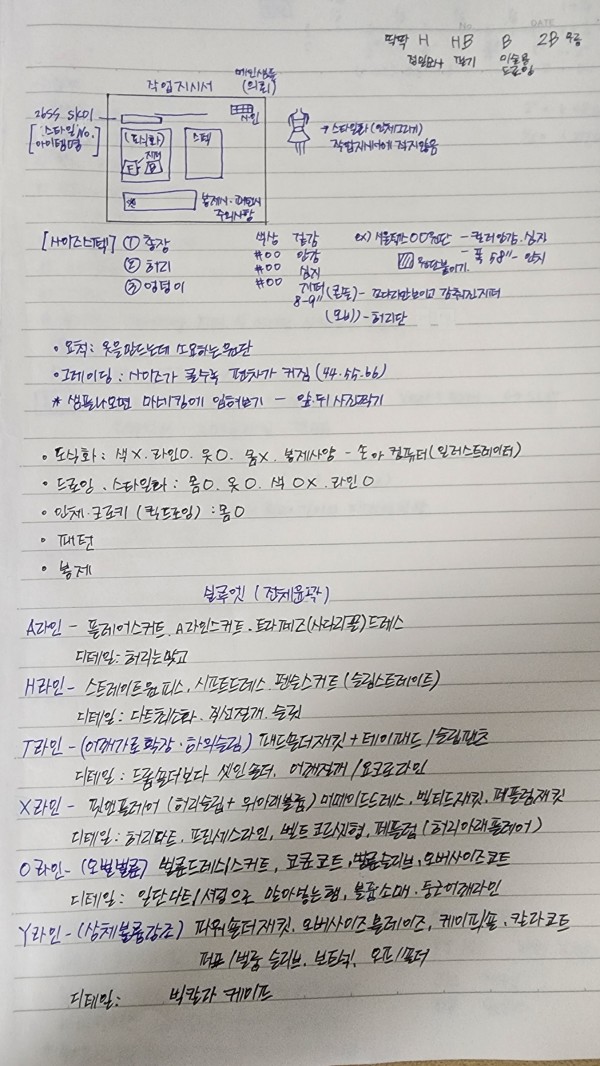 딱딱 H HB B 2B 무름
필기 미술용
드로잉
작업지시서 메인샘플
(의뢰)
26SS SK01
[스타일No.
아이템명]
사인
(도식화) 스펙
F B
봉제시·패턴시
주의사항
→ 스타일화 (인체그리기)
작업지시서에 적지않음
[사이즈스펙] ① 총장 색상 겉감 ex) 서울텍스 00원단 - 컬러안감. 심지
② 허리 #00 안감 - 폭 58"- 야치
③ 엉덩이 #00 심지 원단붙이기.
#00 지퍼 (콘솔) - 꼬다리만보이고 감춰진지퍼
8-9" (오비) - 허리단
• 요척: 옷을만드는데 소요하는원단
• 그레이딩: 사이즈가 클수록 편차가 커짐 (44.55.66)
* 샘플나오면 마네킹에 입혀보기 - 앞.뒤 사진찍기
• 도식화: 색X. 라인O. 옷O. 몸X. 봉제사양 - 손 or 컴퓨터(일러스트레이터)
• 드로잉. 스타일화: 몸O. 옷O. 색OX. 라인O
• 인체·크로키 (퀵드로잉): 몸O
• 패턴
• 봉제
실루엣 (전체윤곽)
A라인 - 플레어스커트. A라인스커트. 트라페즈(사다리꼴)드레스
디테일: 허리는맞고
H라인 - 스트레이트원피스, 시프트드레스. 펜슬스커트 (슬림스트레이트)
디테일: 다트최소화. 직선절개. 슬릿
T라인 - (어깨가로확장·하의슬림) 패드숄더재킷 + 테이퍼드/슬림팬츠
디테일: 드롭숄더보다 셋인숄더, 어깨절개/요크라인
X라인 - 핏앤플레어 (허리슬림 + 위아래볼륨) 머메이드드레스, 벨티드재킷, 페플럼재킷
디테일: 허리다트, 프린세스라인, 벨트 코르셋형, 페플럼 (허리아래플레어)
O라인 - (오벌벌룬) 벌룬드레스/스커트, 코쿤코트, 벌룬슬리브, 오버사이즈코트
디테일: 밑단다트/셔링으로 말아넣는형, 볼륨소매. 둥근어깨라인
Y라인 - (상체볼륨강조) 파워숄더재킷, 오버사이즈블레이즈, 케이프/숄, 칼라코트
퍼프/벌룬 슬리브. 보트넥, 오프/숄더
디테일: 빅칼라 케이프